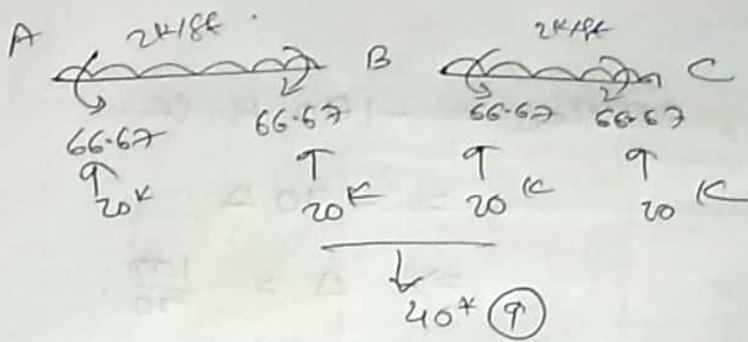 A 2K/8t B 2K/8t C
66.67 66.67 66.67 66.67
20K 20K 20K 20 K
40K ↑